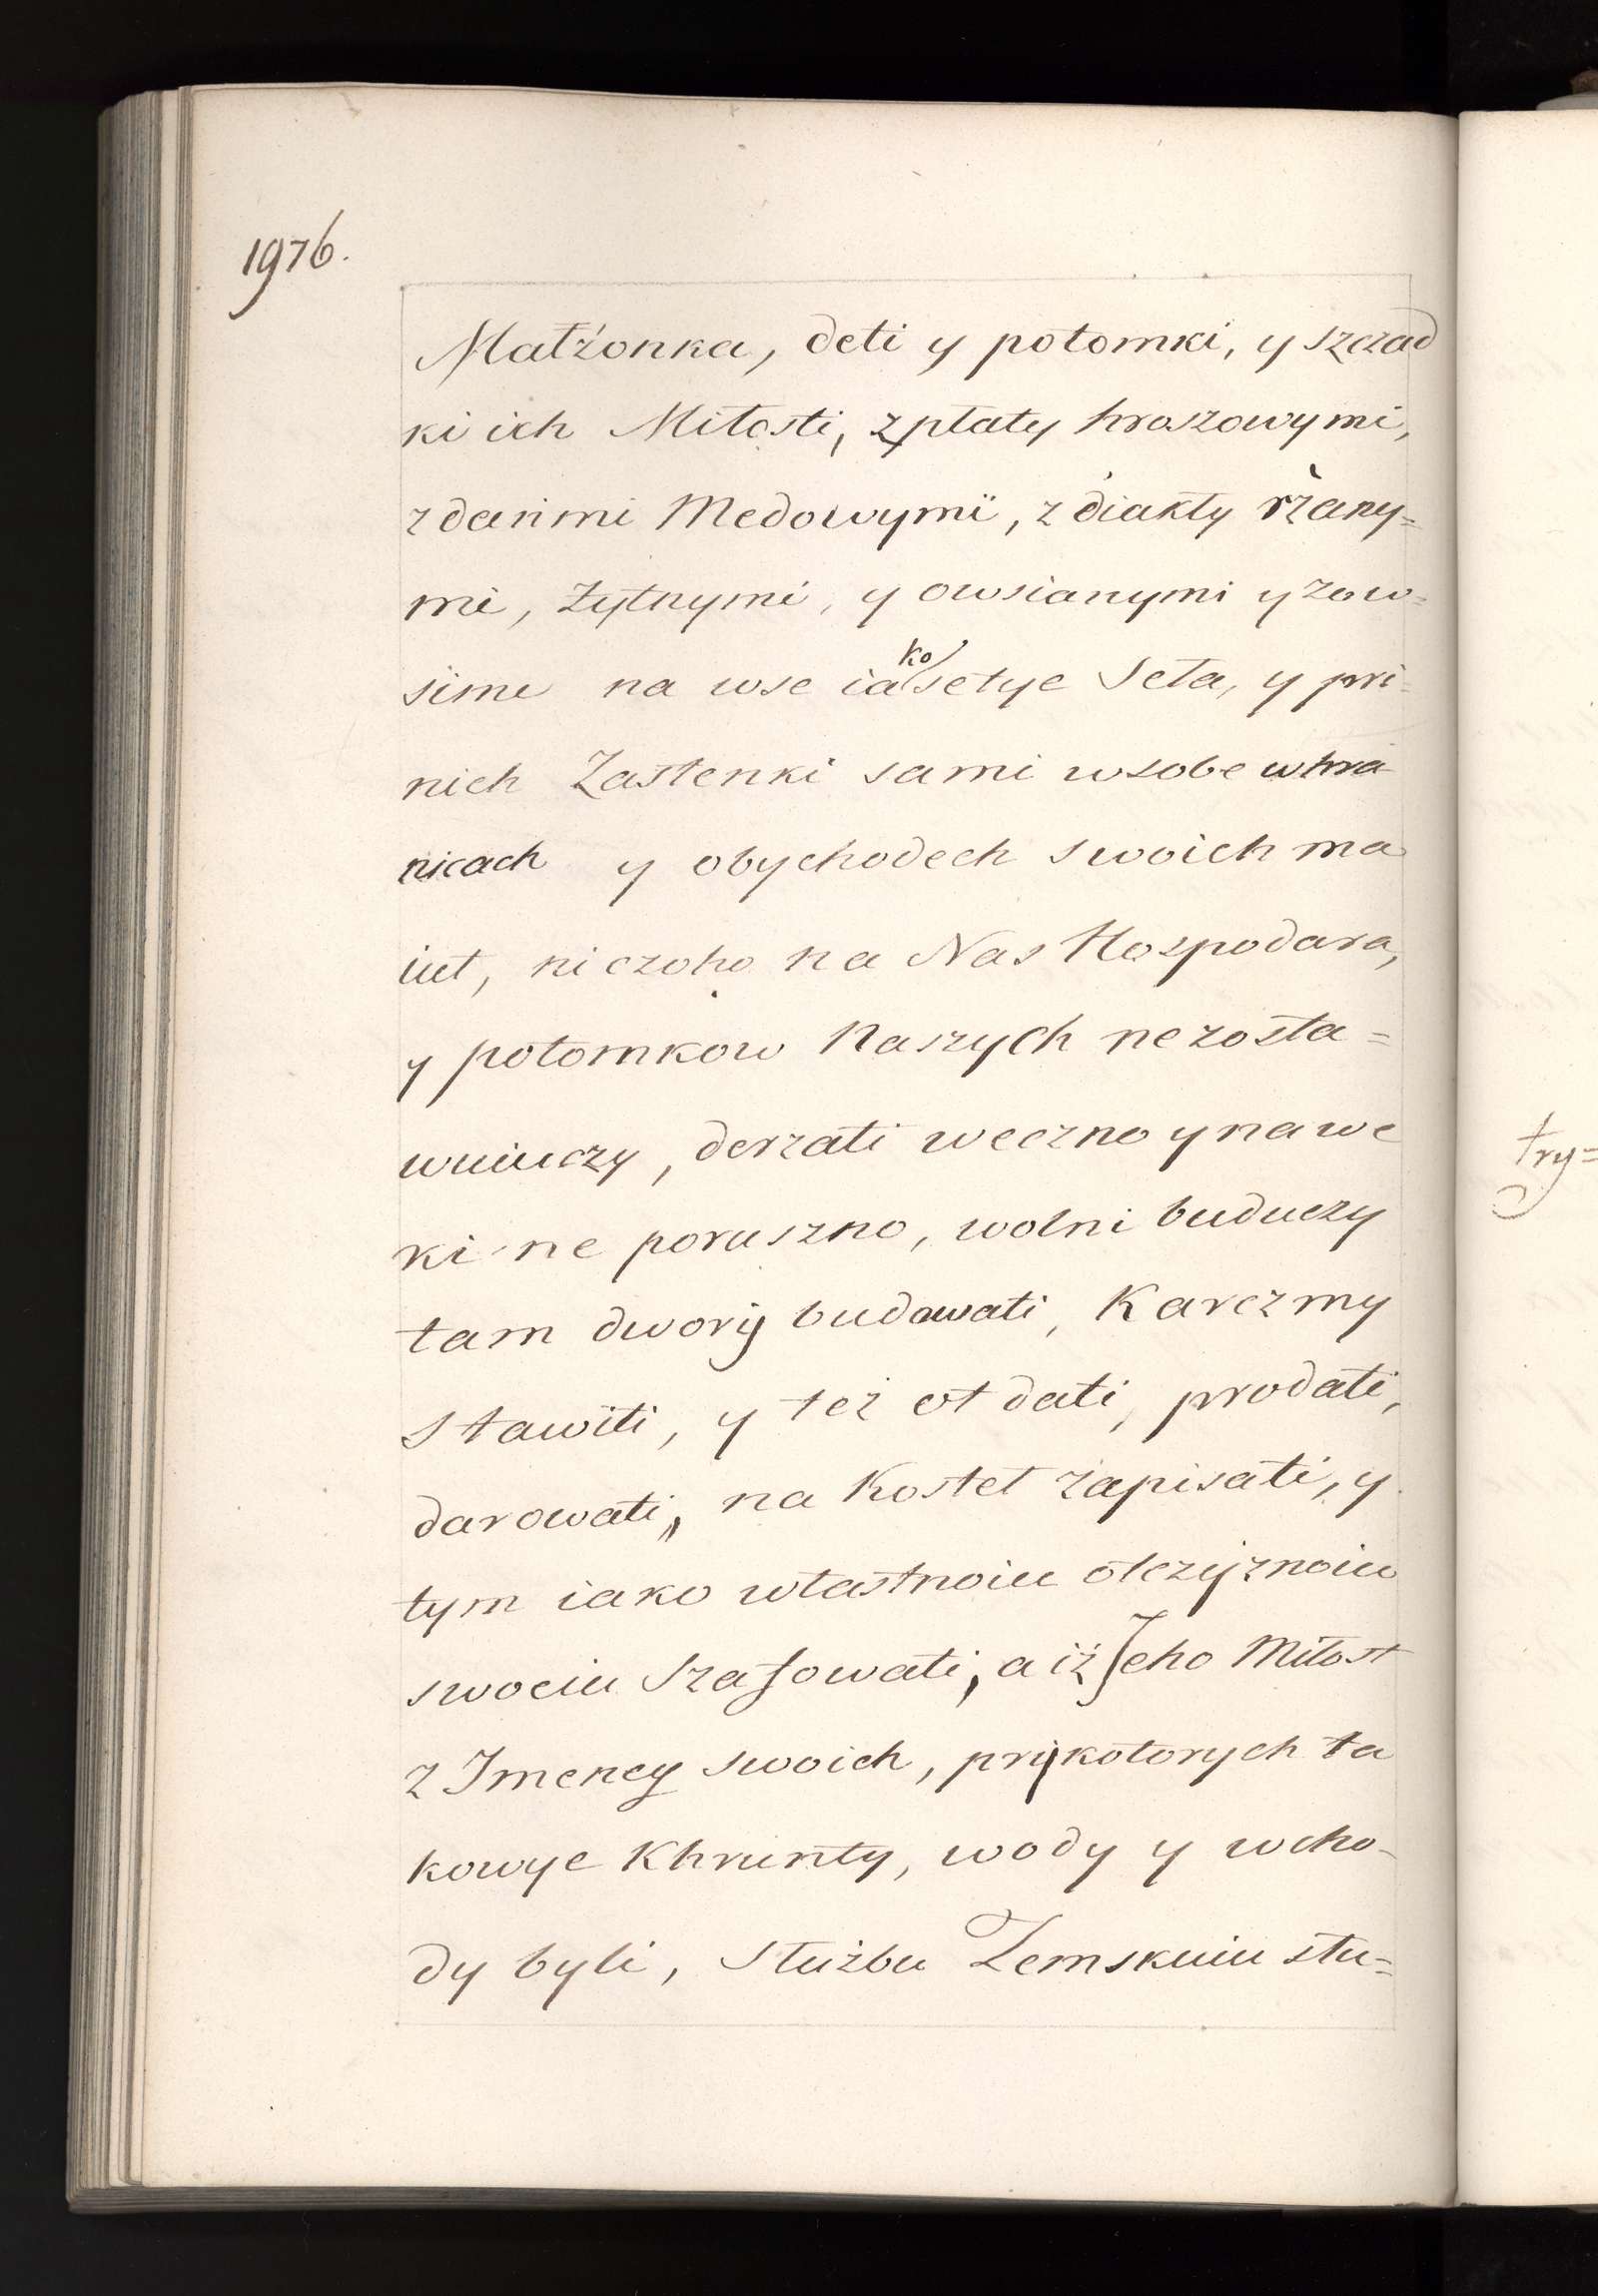 1976.
Małżonka, deti y potomki, y szczad
ki ich Miłosti, z płaty hroszowymi,
z dańmi Medowymi, z diakły rżany=
mi, żytnymi, y owsianymi y zow=
sime na wse iako setye Seła, y pri=
nich Zastenki sami wsobe whra
nicach y obychodech swoich ma
iut, niczoho na Nas Hospodara,
y potomkow Naszych nezosta=
wuiuczy, derzati weczno y nawe
ki ne poruszno, wolni buduczy
tam dwory budowati, Karczmy
stawiti, y też otdati, prodati,
darowati, na Kosteł zapisati, y
tym iako własnoiu otczyznoiu
swoeiu szafowati, a iż Jeho Miłost
z Imeney swoich, pry kotorych ta
kowye Khrunty, wody y wcho-
dy byli, służbu Zemskuiu słu=
try=